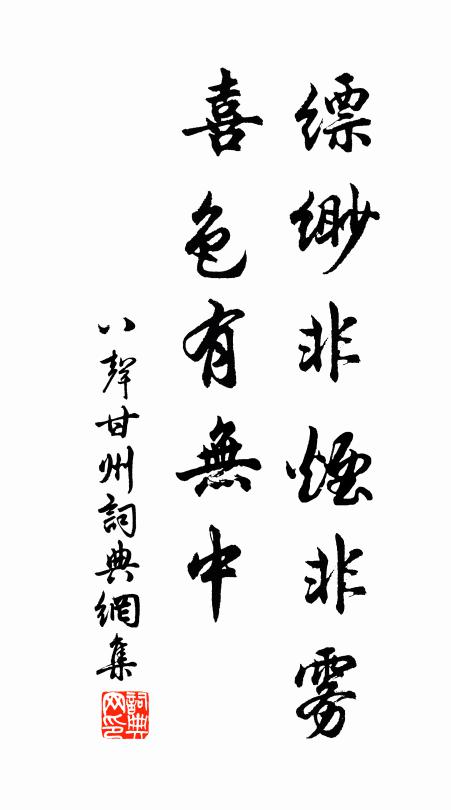 縹緲非煙非霧
喜色有無中
八聲甘州詞典網集
詞典網印